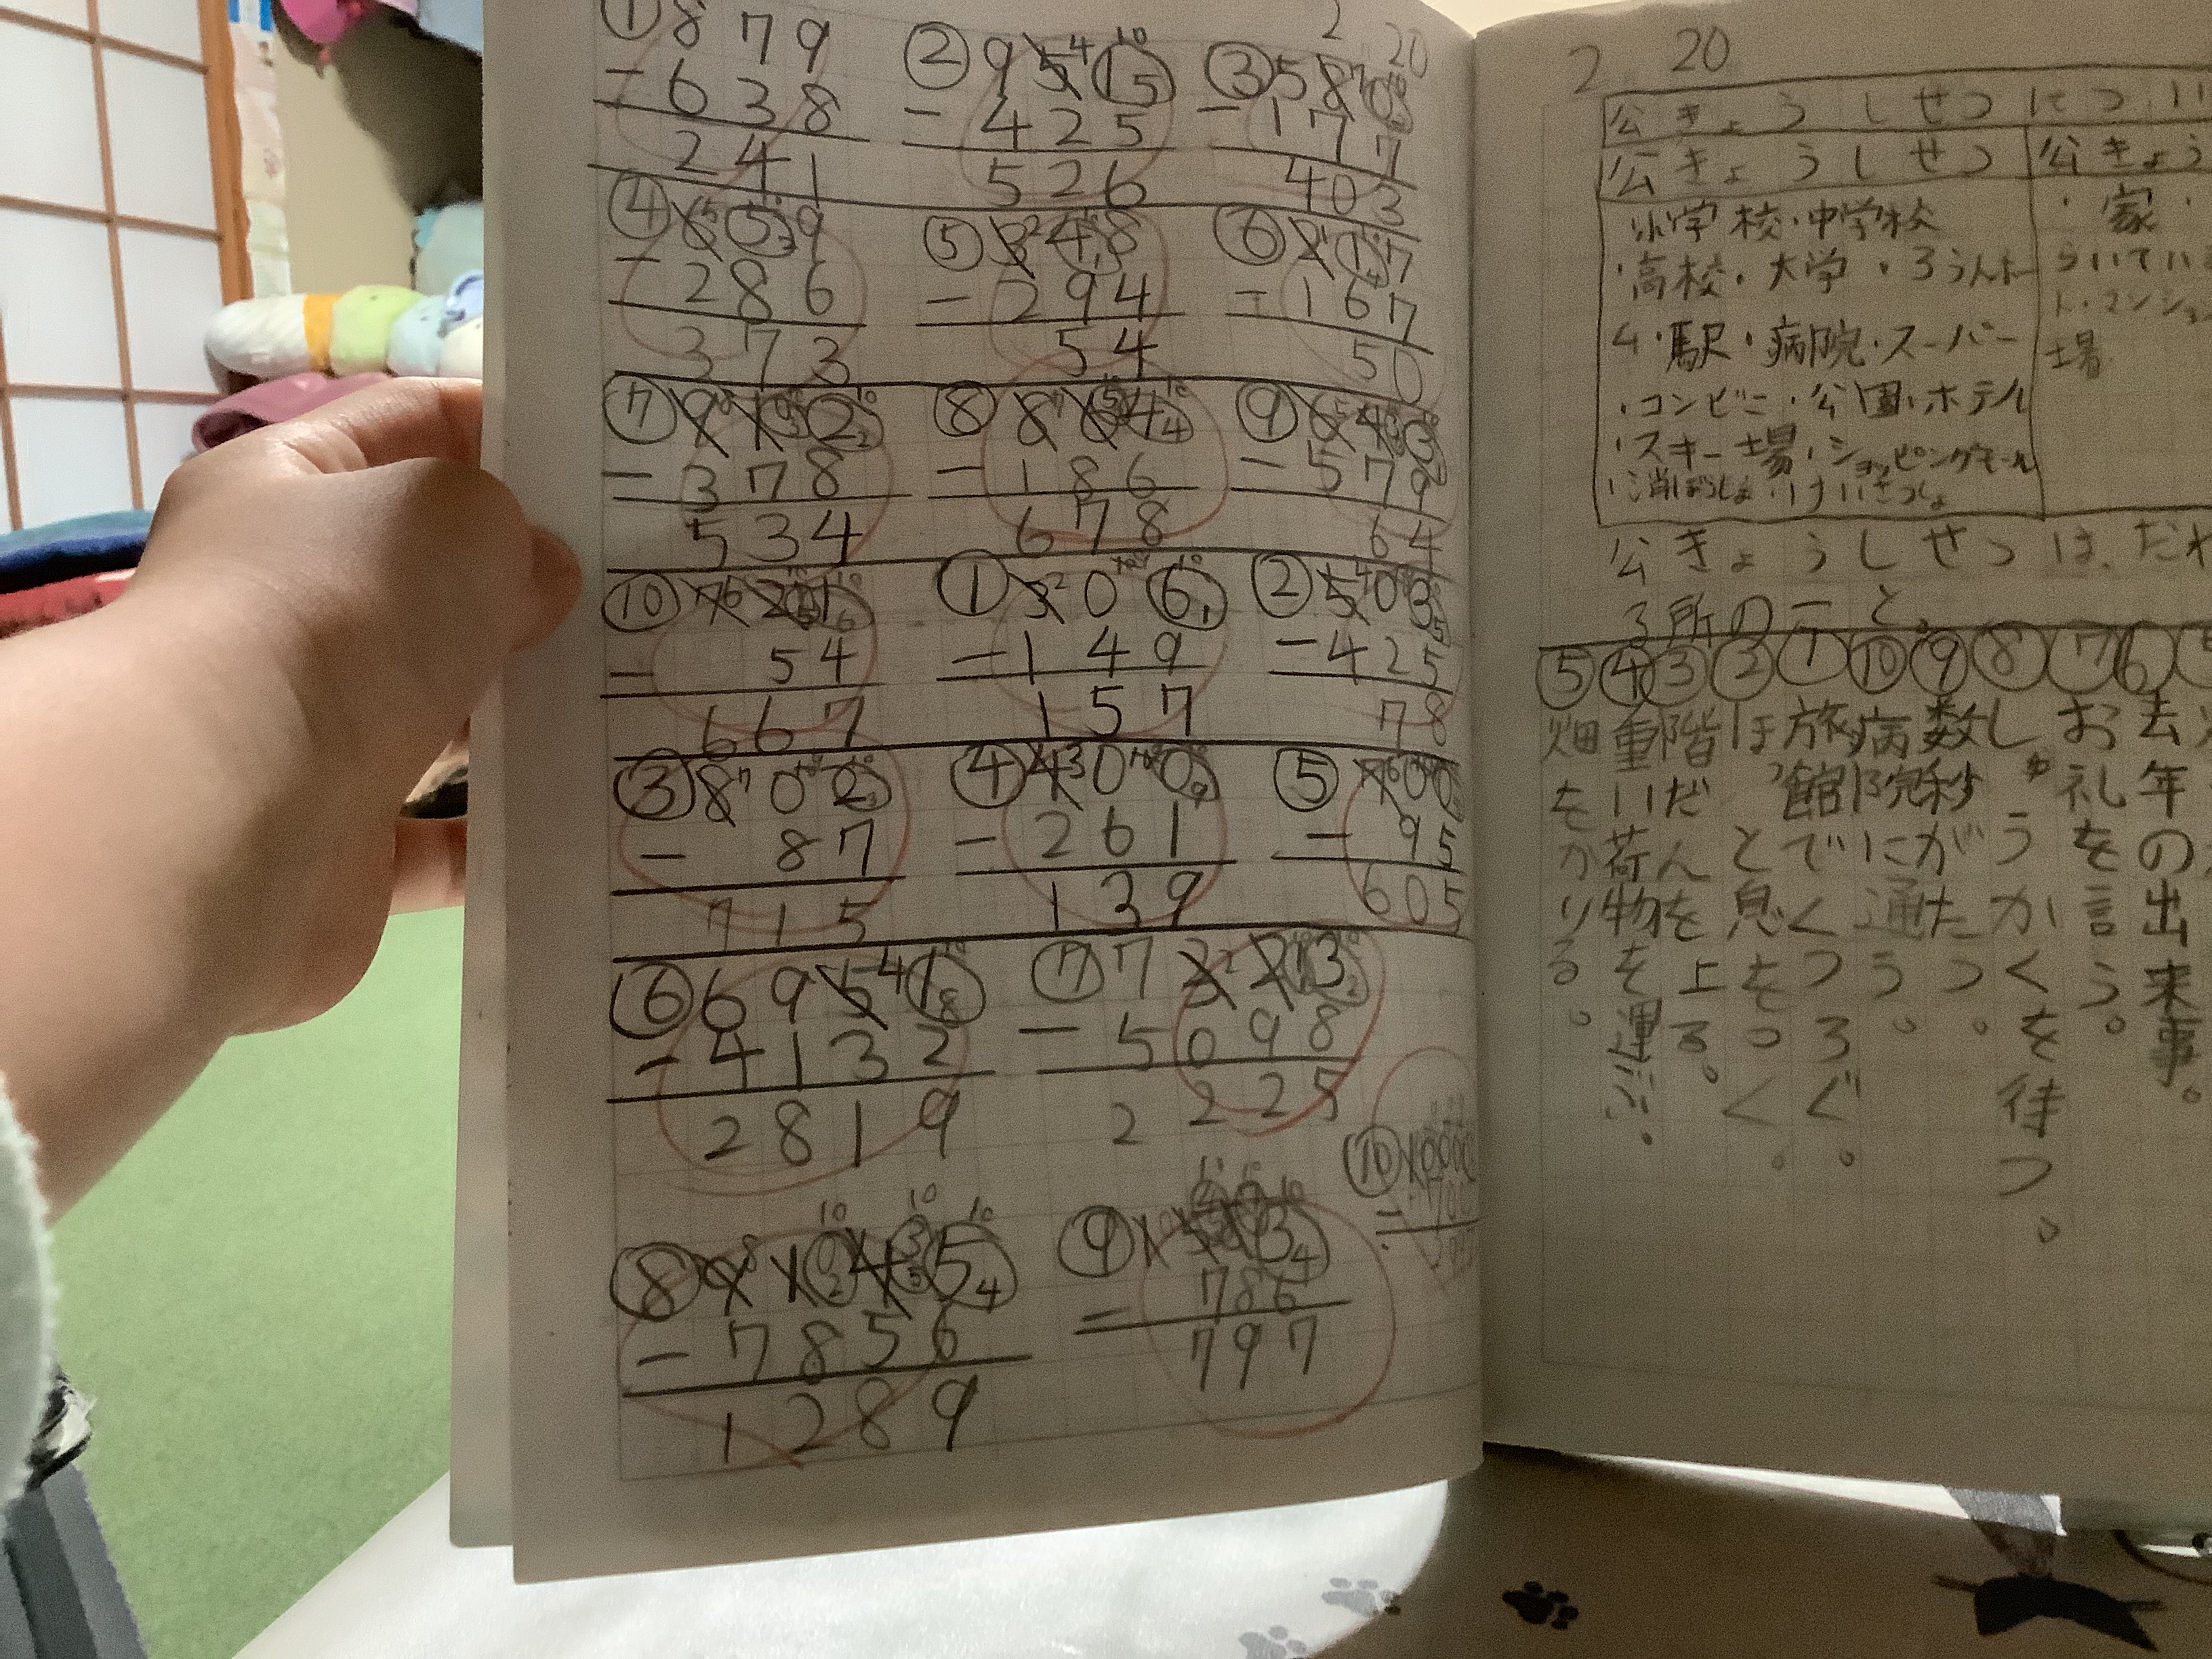 2 20
① 879
-638
241
② 9515
-425
526
③ 587
-177
403
④ 659
-286
373
⑤ 348
-294
54
⑥ 217
-167
50
⑦ 912
-378
534
⑧ 864
-186
678
⑨ 643
-579
64
⑩ 721
-54
667
① 306
-149
157
② 503
-425
78
③ 802
-87
715
④ 400
-261
139
⑤ 700
-95
605
⑥ 6951
-4132
2819
⑦ 7323
-5098
2225
⑧ 9145
-7856
1289
⑨
786
797
⑩
2 20
公きょうしせつ
公きょうしせつ
公きょう
小学校・中学校
・高校・大学・ろうんホー
ム・駅・病院・スーパー
・コンビニ・公園・ホテル
・スキー場・ショッピングモール
・消ぼうしょ・けいさつしょ
・家・
場
公きょうしせつは、だれ
る所のこと。
去年の出来事。
⑦ お礼を言う。
⑧ しゅうかくを待つ。
⑨ 数秒がたつ。
⑩ 病院に通う。
① 旅館でくつろぐ。
② ほっと息をつく。
③ 階だんを上る。
④ 重い荷物を運ぶ。
⑤ 畑をかりる。